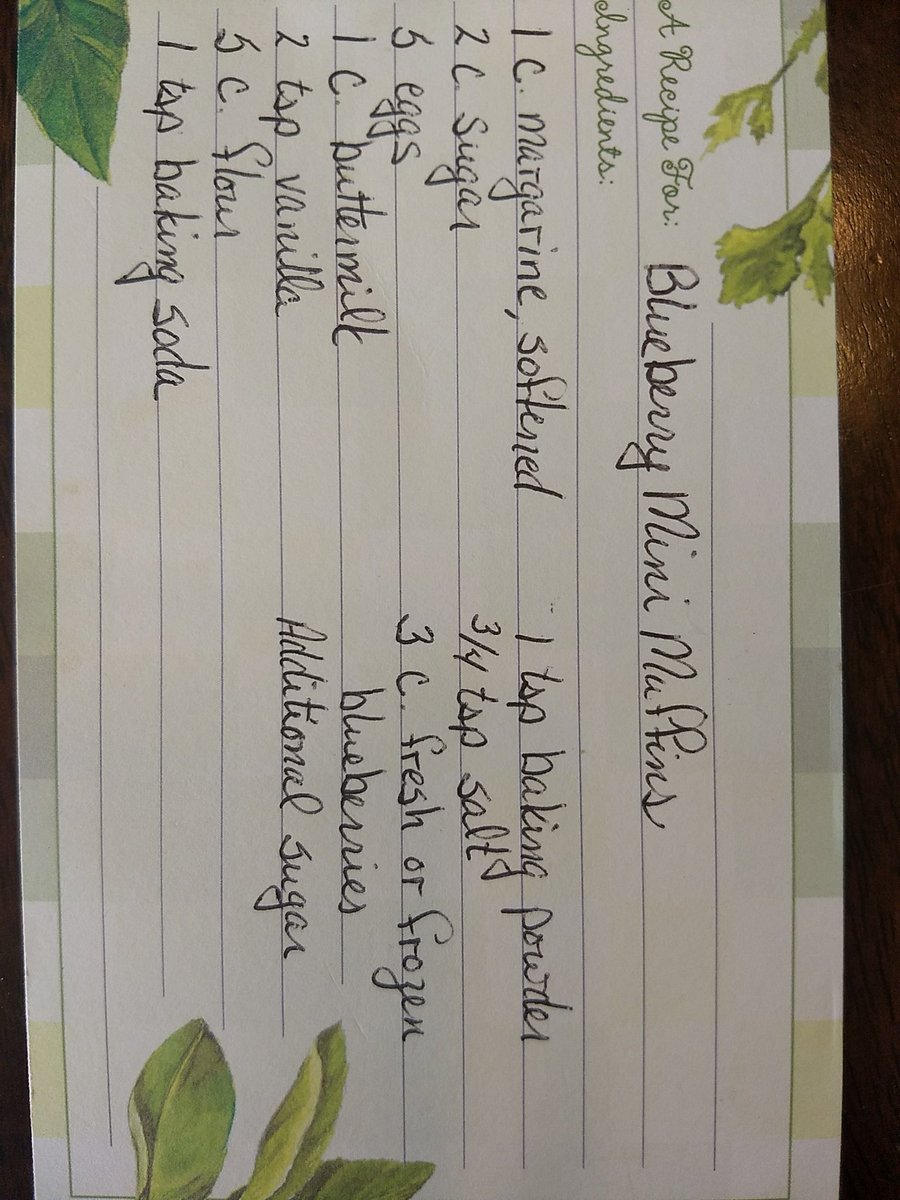 A Recipe For: Blueberry Mini Muffins
Ingredients:
1 c. margarine, softened
2 c. sugar
5 eggs
1 c. buttermilk
2 tsp vanilla
5 c. flour
1 tsp baking soda
1 tsp baking powder
3/4 tsp salt
3 c. fresh or frozen
blueberries
Additional sugar